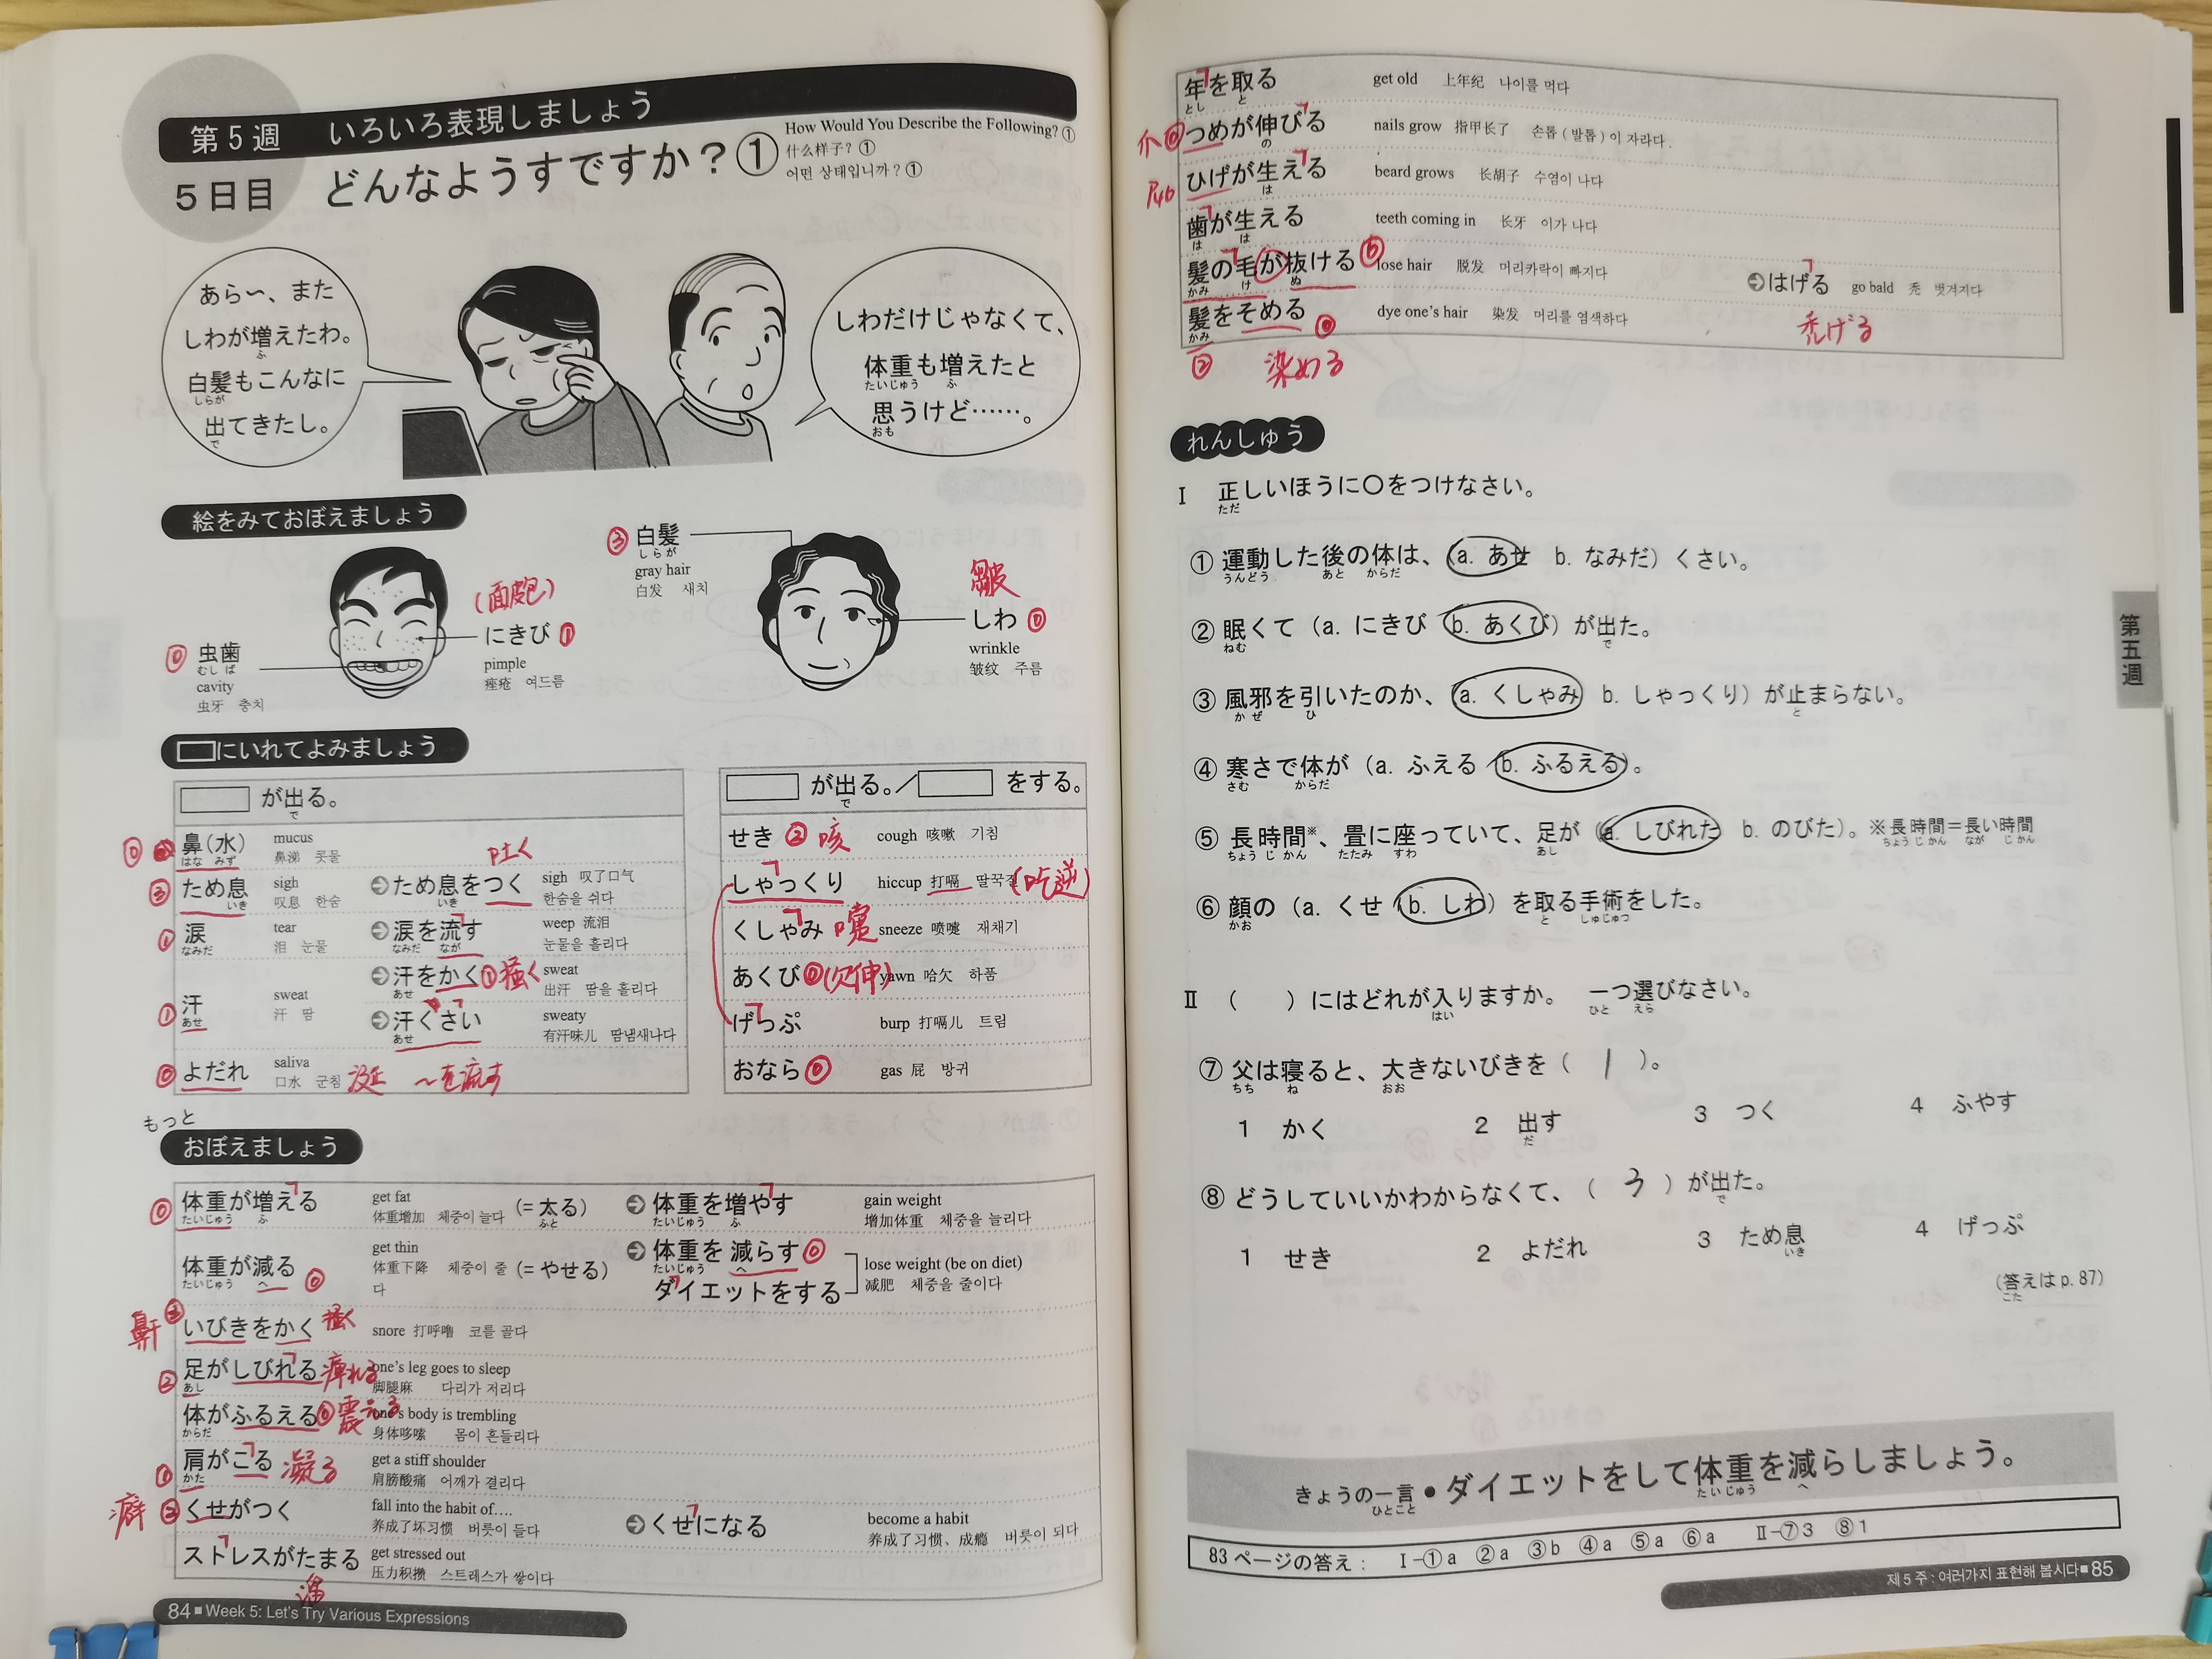 第5週 いろいろ表現しましょう
5日目 どんなようすですか？①
How Would You Describe the Following? ①
什么样子? ①
어떤 상태입니까 ? ①
あら〜、また
しわが増えたわ。
ふ
白髪もこんなに
しらが
出てきたし。
で
しわだけじゃなくて、
体重も増えたと
たいじゅう ふ
思うけど……。
おも
絵をみておぼえましょう
⓪ 虫歯
むし ば
cavity
虫牙 충치
(面皰)
にきび ①
pimple
痤疮 여드름
③ 白髪
しらが
gray hair
白发 새치
皺
しわ ⓪
wrinkle
皱纹 주름
にいれてよみましょう
が出る。
で
⓪ 鼻(水) mucus
はな みず 鼻涕 콧물
吐く
③ ため息 sigh ➔ため息をつく sigh 叹了口气
いき 叹息 한숨 いき 한숨을 쉬다
① 涙 tear ➔涙を流す weep 流泪
なみだ 泪 눈물 なみだ なが 눈물을 흘리다
➔汗をかく ① 掻く sweat
あせ 出汗 땀을 흘리다
① 汗 sweat ➔汗くさい sweaty
あせ 汗 땀 あせ 有汗味儿 땀냄새나다
⓪ よだれ saliva
口水 군침 涎 〜を流す
が出る。／ をする。
で
せき ② 咳 cough 咳嗽 기침
しゃっくり hiccup 打嗝 딸꾹질 (吃逆)
くしゃみ 嚏 sneeze 喷嚏 재채기
あくび ⓪ (欠伸) yawn 哈欠 하품
げっぷ burp 打嗝儿 트림
おなら ⓪ gas 屁 방귀
もっと
おぼえましょう
⓪ 体重が増える get fat (= 太る) ➔ 体重を増やす gain weight
たいじゅう ふ 体重增加 체중이 늘다 ふと たいじゅう ふ 增加体重 체중을 늘리다
体重が減る ⓪ get thin (= やせる) ➔ 体重を減らす ⓪
たいじゅう へ 体重下降 체중이 줄다 たいじゅう へ
ダイエットをする
lose weight (be on diet)
减肥 체중을 줄이다
鼾 ③ いびきをかく 掻く snore 打呼噜 코를 골다
② 足がしびれる 痺れる one's leg goes to sleep
あし 脚腿麻 다리가 저리다
体がふるえる ⓪ 震える one's body is trembling
からだ 身体哆嗦 몸이 흔들리다
① 肩がこる 凝る get a stiff shoulder
かた 肩膀酸痛 어깨가 결리다
癖 ② くせがつく fall into the habit of.... ➔ くせになる become a habit
养成了坏习惯 버릇이 들다 养成了习惯、成瘾 버릇이 되다
ストレスがたまる get stressed out
溜 压力积攒 스트레스가 쌓이다
84■Week 5: Let's Try Various Expressions
年を取る get old 上年纪 나이를 먹다
とし と
爪 ⓪ つめが伸びる nails grow 指甲长了 손톱 ( 발톱 ) 이 자라다 .
の
P46 ひげが生える beard grows 长胡子 수염이 나다
は
歯が生える teeth coming in 长牙 이가 나다
は は
髪の毛が抜ける ⓪ lose hair 脱发 머리카락이 빠지다 ➔はげる go bald 秃 벗겨지다
かみ け ぬ
髪をそめる ⓪ dye one's hair 染发 머리를 염색하다 禿げる
かみ
② 染める
れんしゅう
Ⅰ 正しいほうに〇をつけなさい。
ただ
① 運動した後の体は、（a. あせ b. なみだ）くさい。
うんどう あと からだ
② 眠くて（a. にきび b. あくび）が出た。
ねむ で
③ 風邪を引いたのか、（a. くしゃみ b. しゃっくり）が止まらない。
かぜ ひ と
④ 寒さで体が（a. ふえる b. ふるえる）。
さむ からだ
⑤ 長時間※、畳に座っていて、足が（a. しびれた b. のびた）。※長時間＝長い時間
ちょう じ かん たたみ すわ あし ちょう じ かん なが じ かん
⑥ 顔の（a. くせ b. しわ）を取る手術をした。
かお と しゅじゅつ
Ⅱ （ ）にはどれが入りますか。 一つ選びなさい。
はい ひと えら
⑦ 父は寝ると、大きないびきを（ 1 ）。
ちち ね おお
1 かく 2 出す 3 つく 4 ふやす
だ
⑧ どうしていいかわからなくて、（ 3 ）が出た。
で
1 せき 2 よだれ 3 ため息 4 げっぷ
いき
(答えは p. 87)
こた
第五週
きょうの一言 ● ダイエットをして体重を減らしましょう。
ひとこと たいじゅう へ
83 ページの答え： Ⅰ-①a ②a ③b ④a ⑤a ⑥a Ⅱ-⑦3 ⑧1
제 5 주 : 여러가지 표현해 봅시다■85